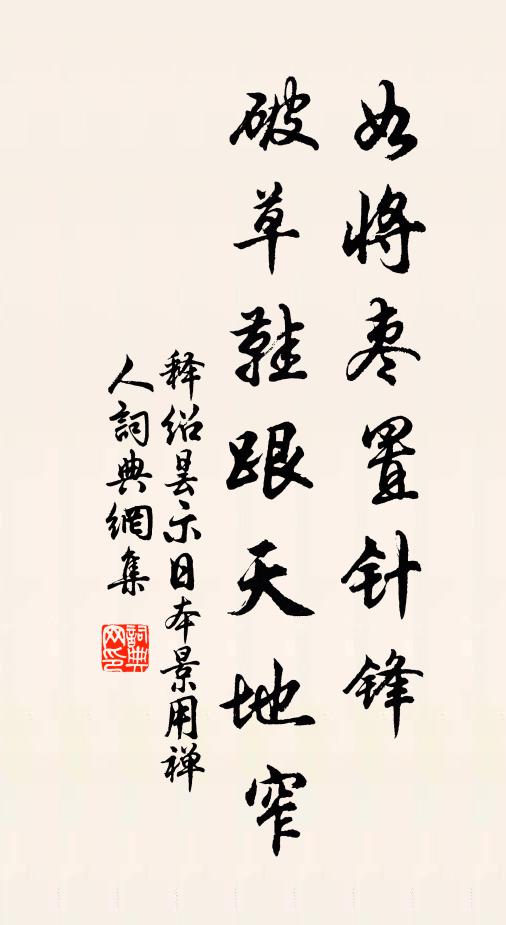 如将枣置针锋
破草鞋跟天地窄
释绍昙示日本景用禅
人詞典網集
詞典
网印